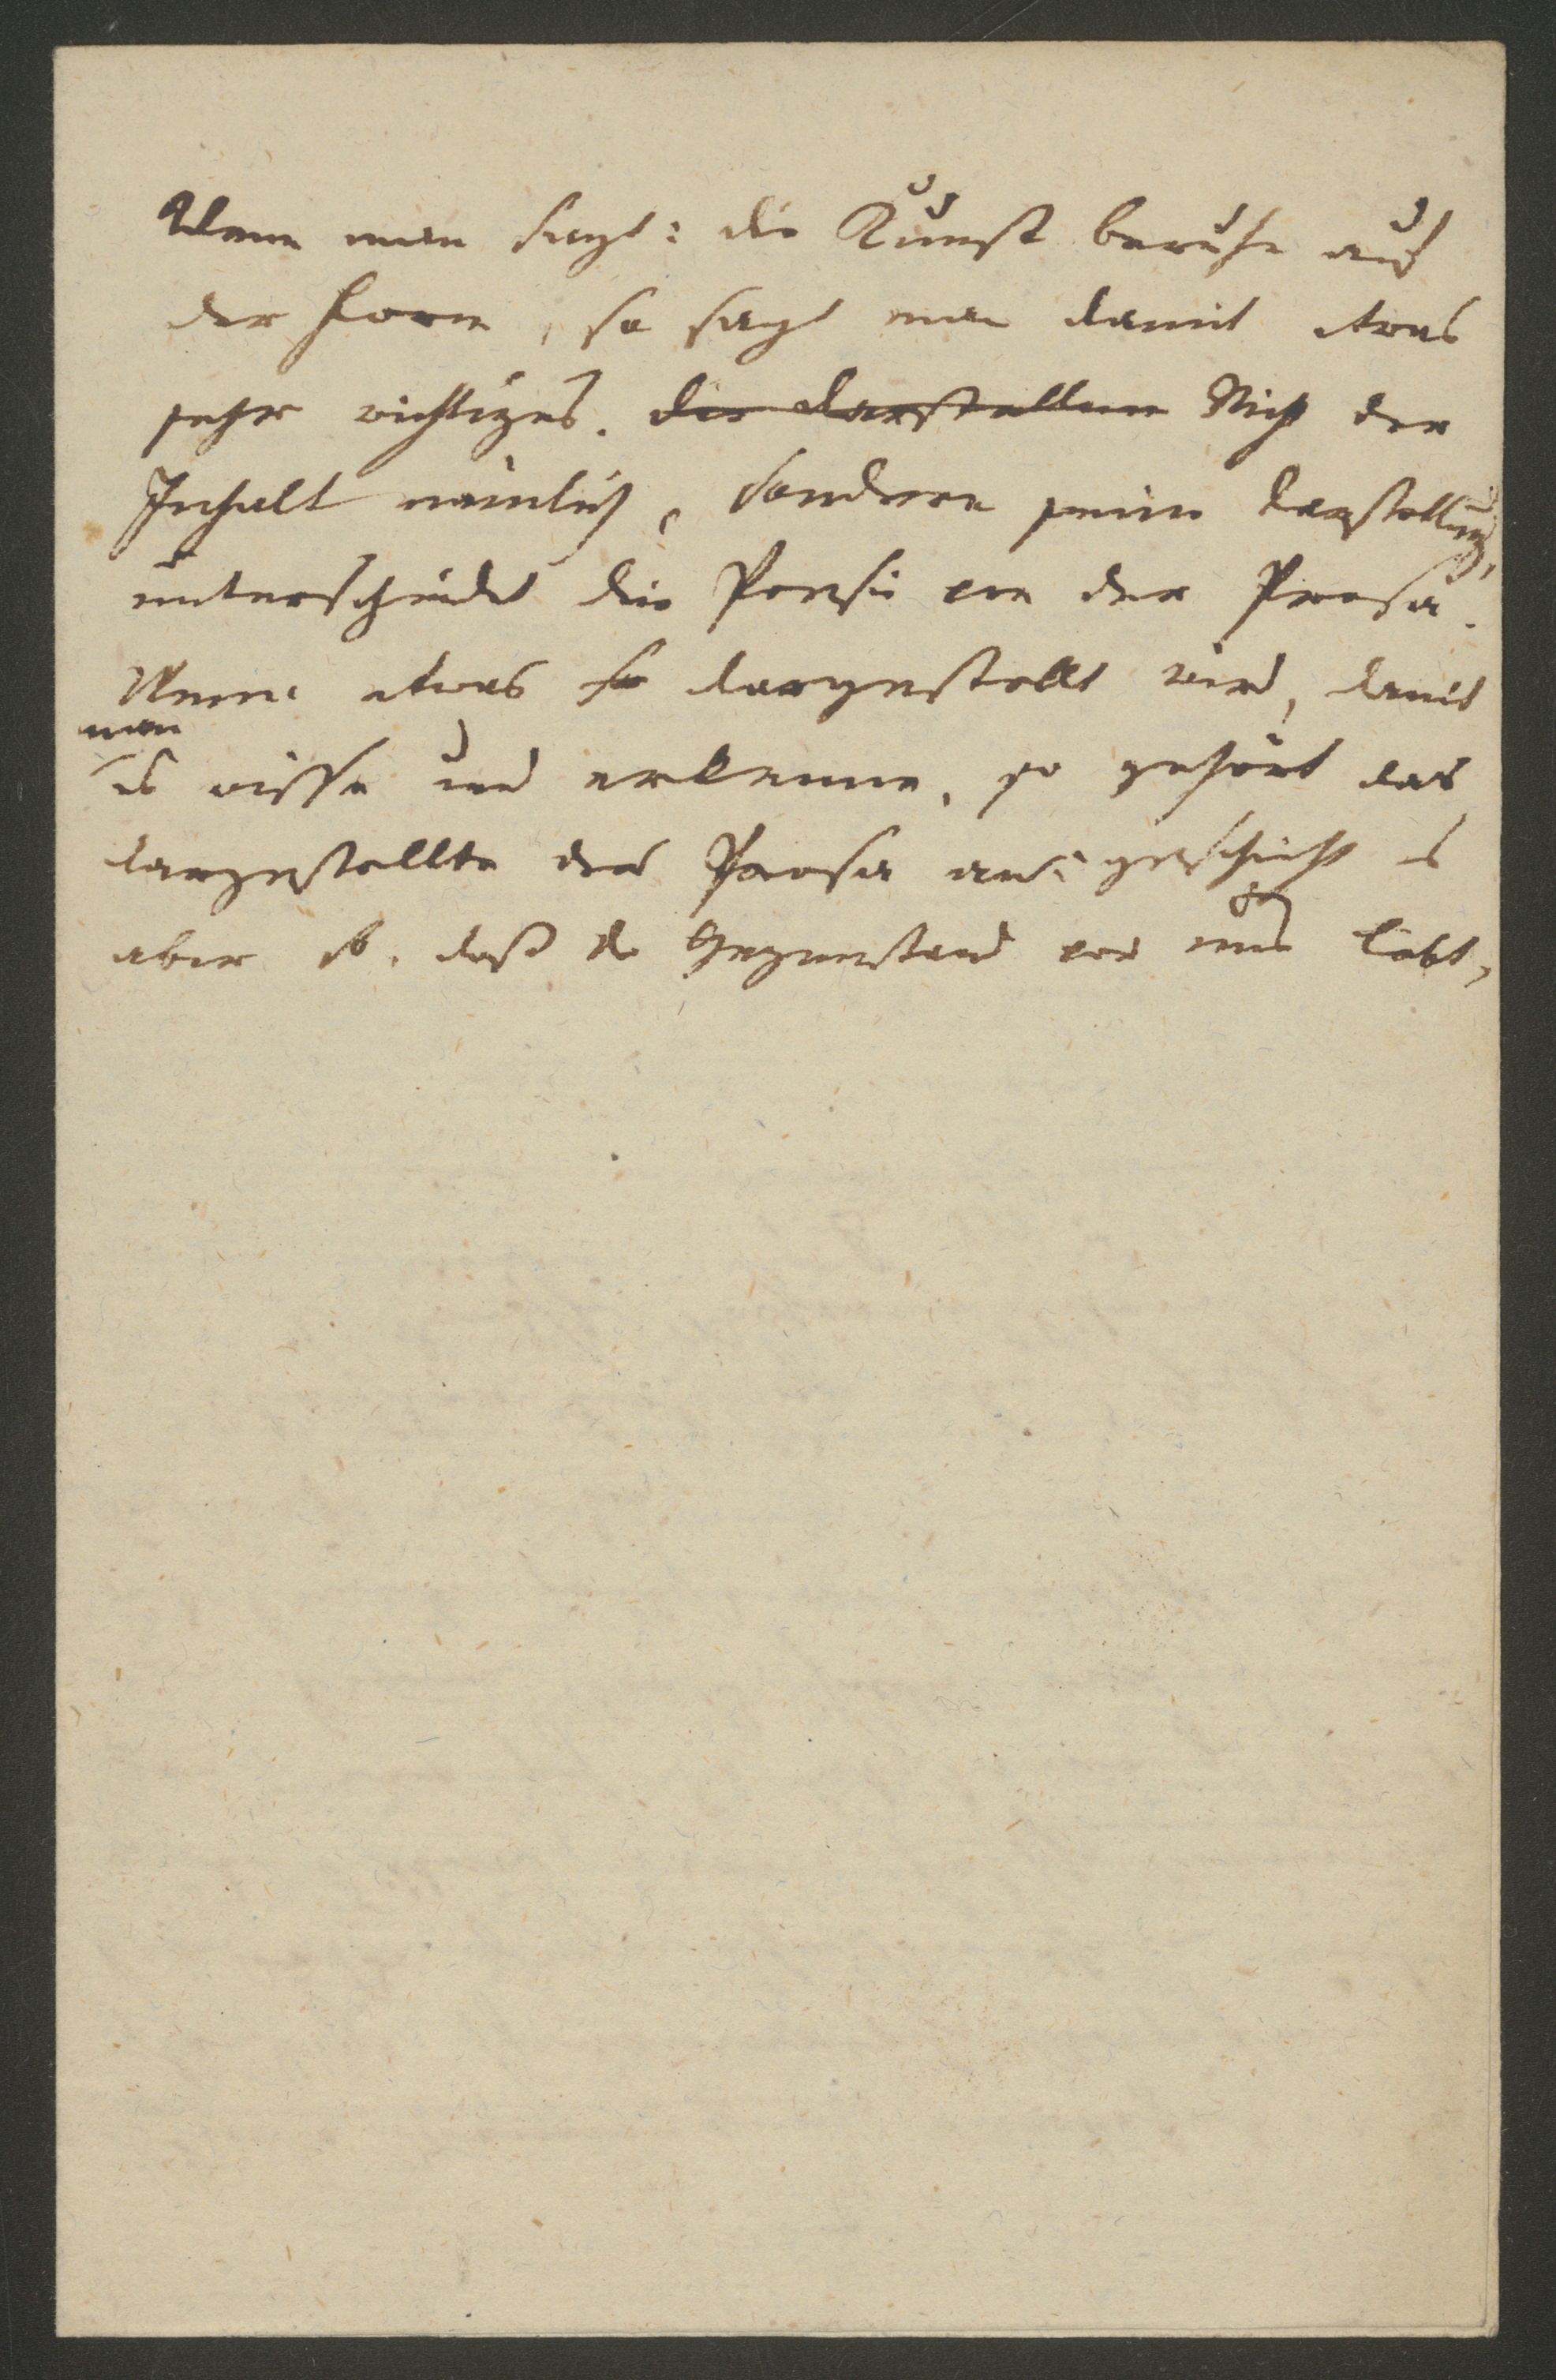 Wenn man sagt: die Kunst beruhe auf
der Form, so sagt man damit etwas
sehr richtiges. die darstellung Nicht der
Inhalt nämlich, sondern seine Darstellung,
unterscheidet die Poesie von der Prosa.
Wenn etwas so dargestellt wird, damit
man
es wisse und erkenne, so gehört das
dargestellte der Prosa an: geschieht es
aber so, daß der Gegenstand vor uns lebt,